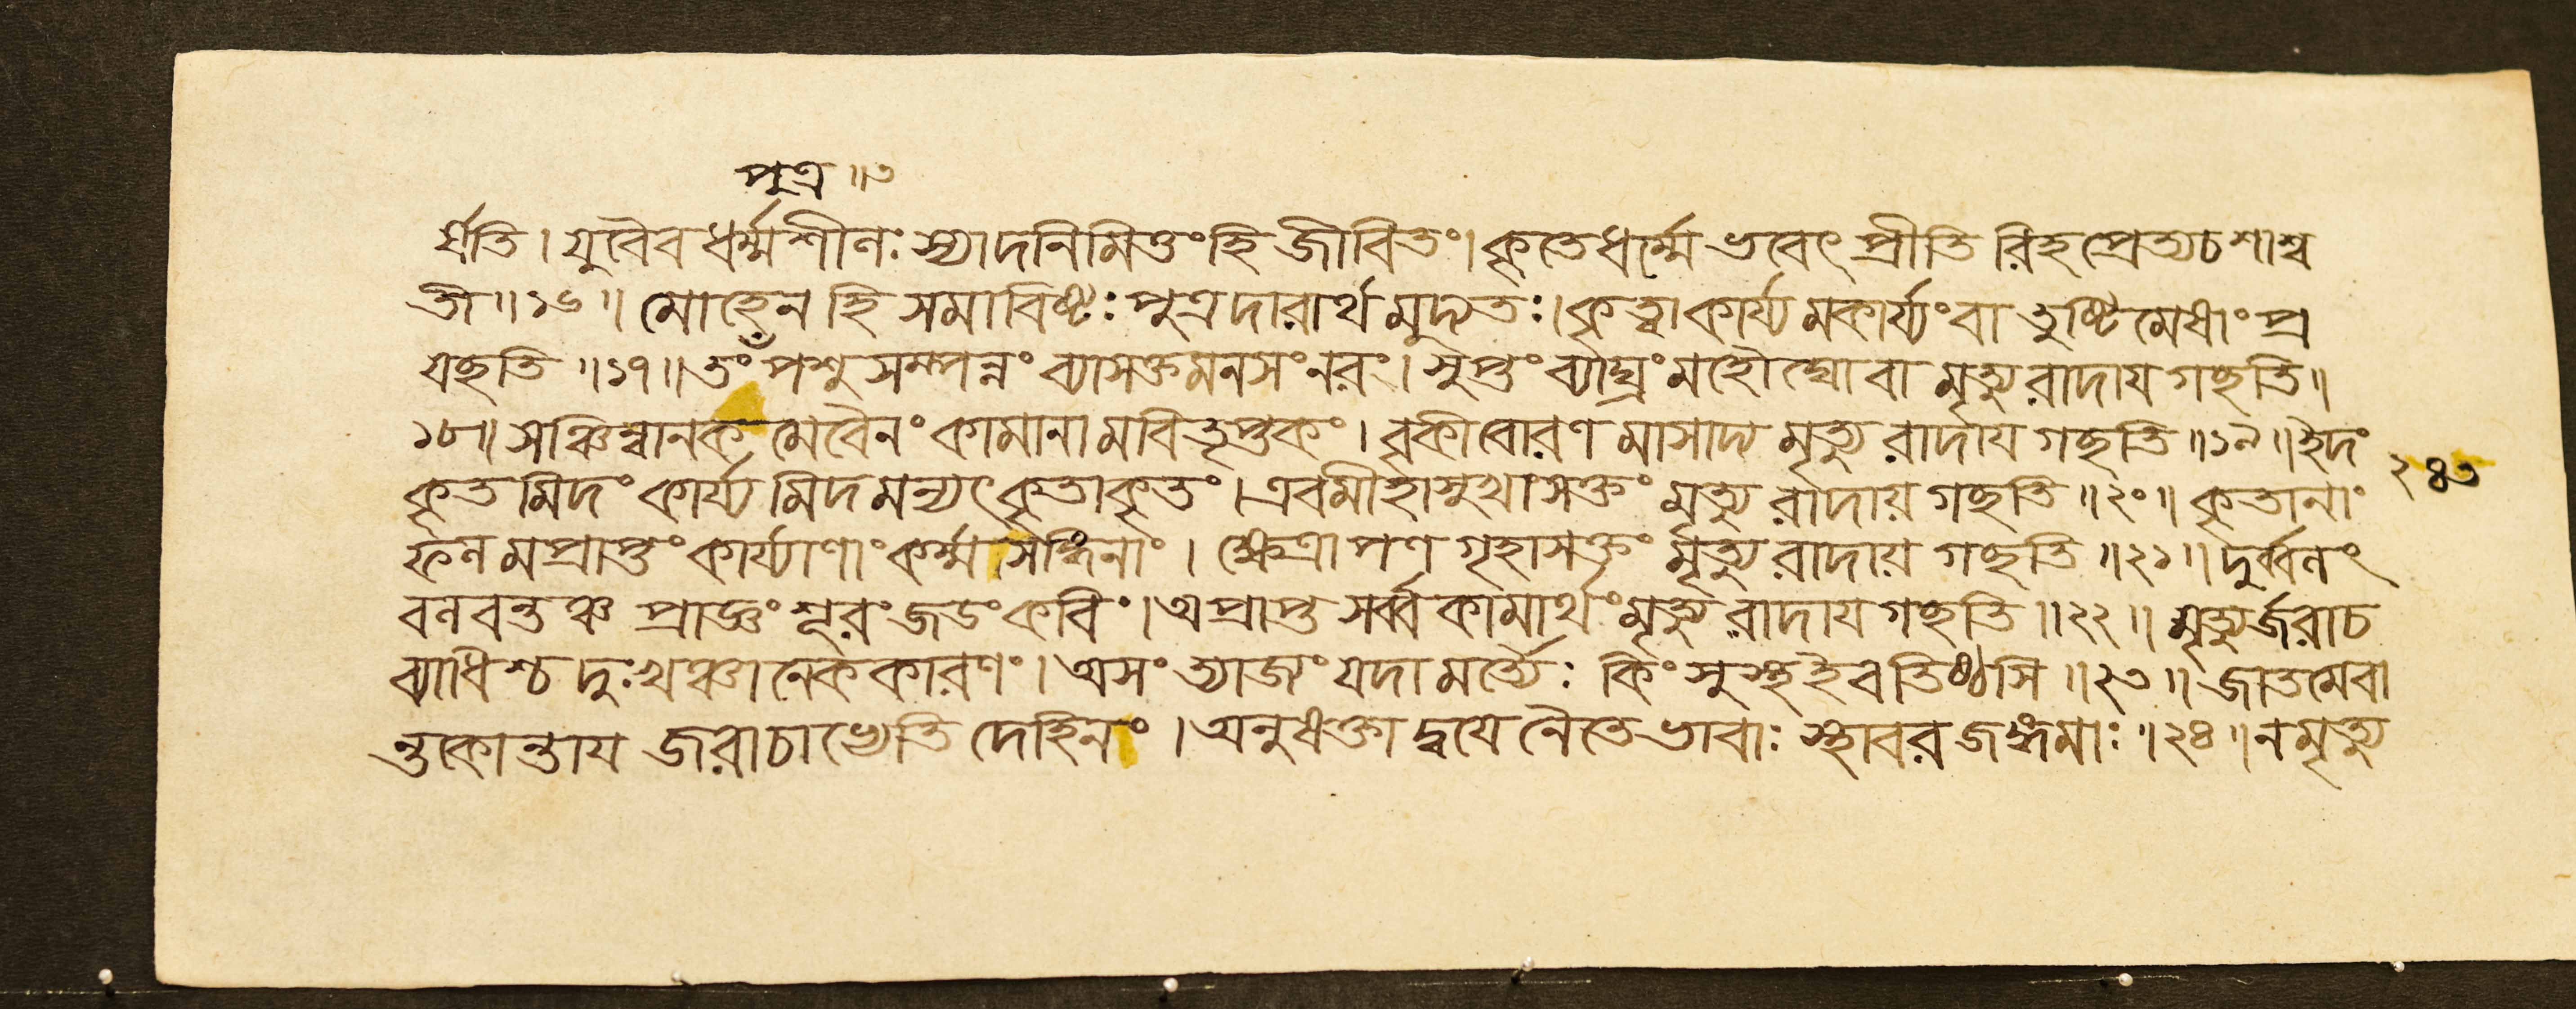 পুত্র ॥৩
র্ঘতি। যুবৈব ধর্ম্মশীলঃ স্যাদনিমিত্তং হি জীবিতং। কৃতে ধর্ম্মে ভবেৎ প্রীতি রিহ প্রেত্য চ শাশ্ব
তী॥১৬॥ মোহেন হি সমাবিষ্টঃ পুত্রদারার্থমুদ্যতঃ। কৃত্বা কার্য্যমকার্য্যং বা তুষ্টিমেষাং প্র
যছতি॥১৭॥ তং পশুসম্পন্নং ব্যাসক্তমনসং নরং। সুপ্তং ব্যাঘ্রং মহৌঘো বা মৃত্যুরাদায গছতি॥
১৮॥ সঞ্চিন্বানকমেবৈনং কামানামবিতৃপ্তকং। বৃকীবোরণমাসাদ্য মৃত্যুরাদায গছতি॥১৯॥ ইদং
কৃতমিদং কার্য্যমিদমন্যৎ কৃতাকৃতং। এবমীহাসুখাসক্তং মৃত্যুরাদায় গছতি॥২০॥ কৃতানাং ২৪৩
ফলমপ্রাপ্তং কার্য্যাণাং কর্ম্মসঙ্গিনাং। ক্ষেত্রাপণগৃহাসক্তং মৃত্যুরাদায় গছতি॥২১॥ দুর্ব্বলং
বলবন্তঞ্চ প্রাজ্ঞং শূরং জডং কবিং। অপ্রাপ্তসর্ব্বকামার্থং মৃত্যুরাদায গছতি॥২২॥ মৃত্যুর্জরা চ
ব্যাধিশ্চ দুঃখঞ্চানেককারণং। অসংত্যাজ্যং যদা মর্ত্ত্যেঃ কিং সুস্থ ইব তিষ্ঠসি॥২৩॥ জাতমেবা
ন্তকোন্তায জরা চাভ্যেতি দেহিনং। অনুষক্তা দ্বযেনৈতে ভাবাঃ স্থাবরজঙ্গমাঃ॥২৪॥ ন মৃত্যু